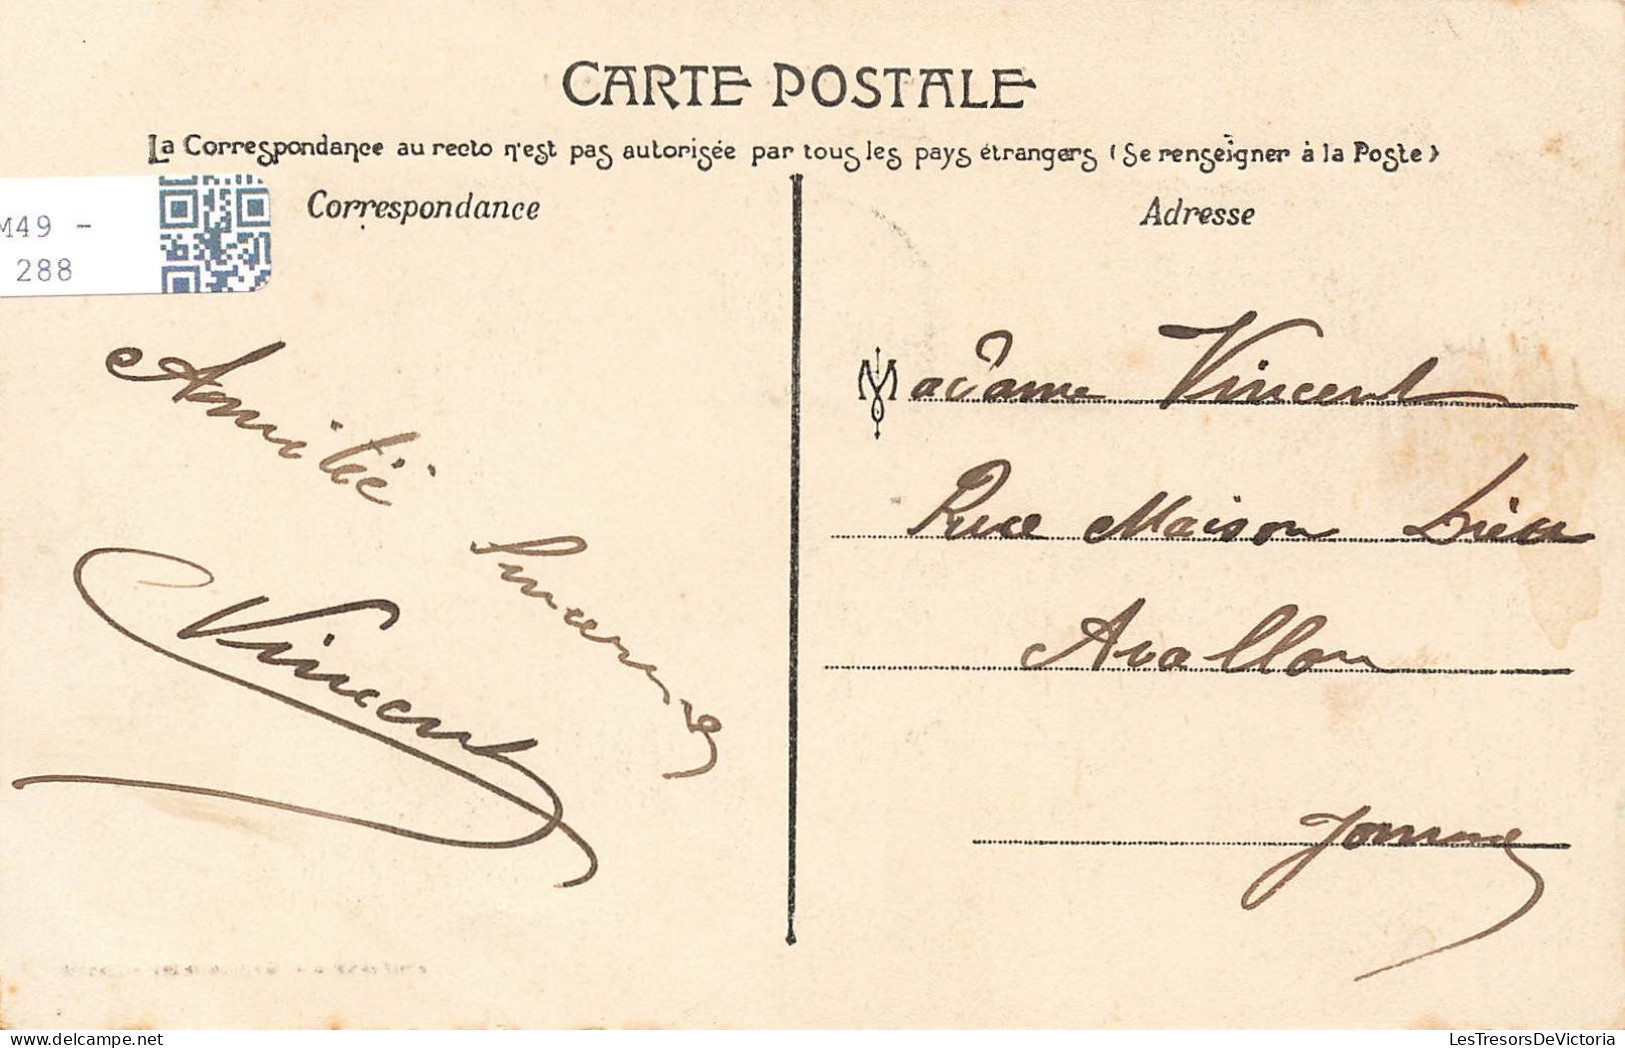 CARTE POSTALE
La Correspondance au recto n'est pas autorisée par tous les pays étrangers (Se renseigner à la Poste)
Correspondance
Adresse
M49 -
288
Amitié
sincères
Vincent
Madame Vincent
Rue Maison Dieu
Avallon
Yonne
LesTresorsDeVictoria